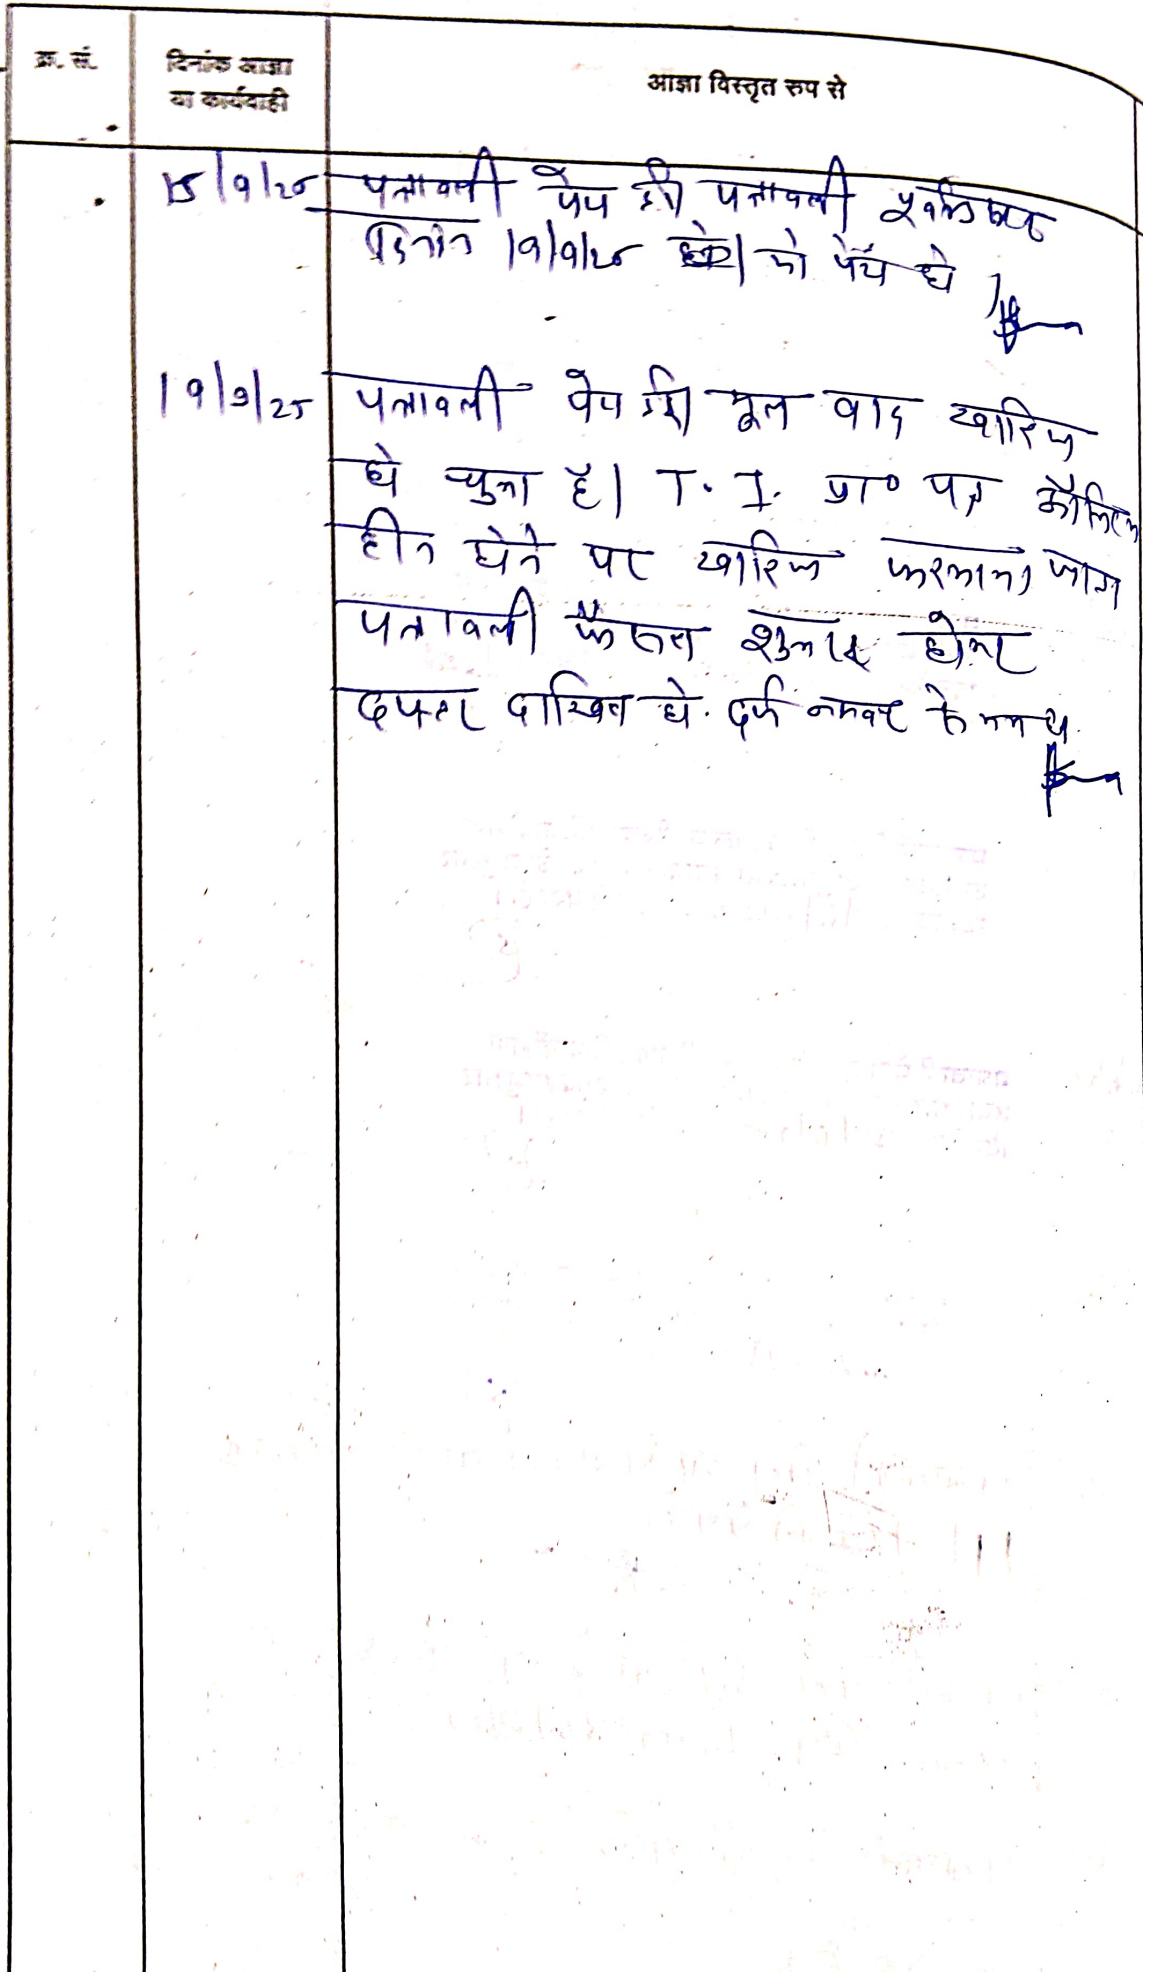 क्र. सं.
दिनांक आज्ञा
या कार्यवाही
आज्ञा विस्तृत रुप से
15/9/25 पत्रावली पेश हुई। पत्रावली पूर्वानुसार
दिनांक 19/9/25 को पेश हो
19/9/25 पत्रावली पेश हुई। मूल वाद खारिज
हो चुका है। T. I. प्रा० पत्र
हीन होने पर खारिज फरमाया जाता
पत्रावली फैसल शुमार होकर
दफ्तर दाखिल हो. दर्ज नम्बर से कम हो.